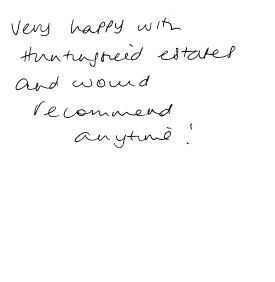 Very happy with
Huntingfield estates
and would
recommend
anytime!